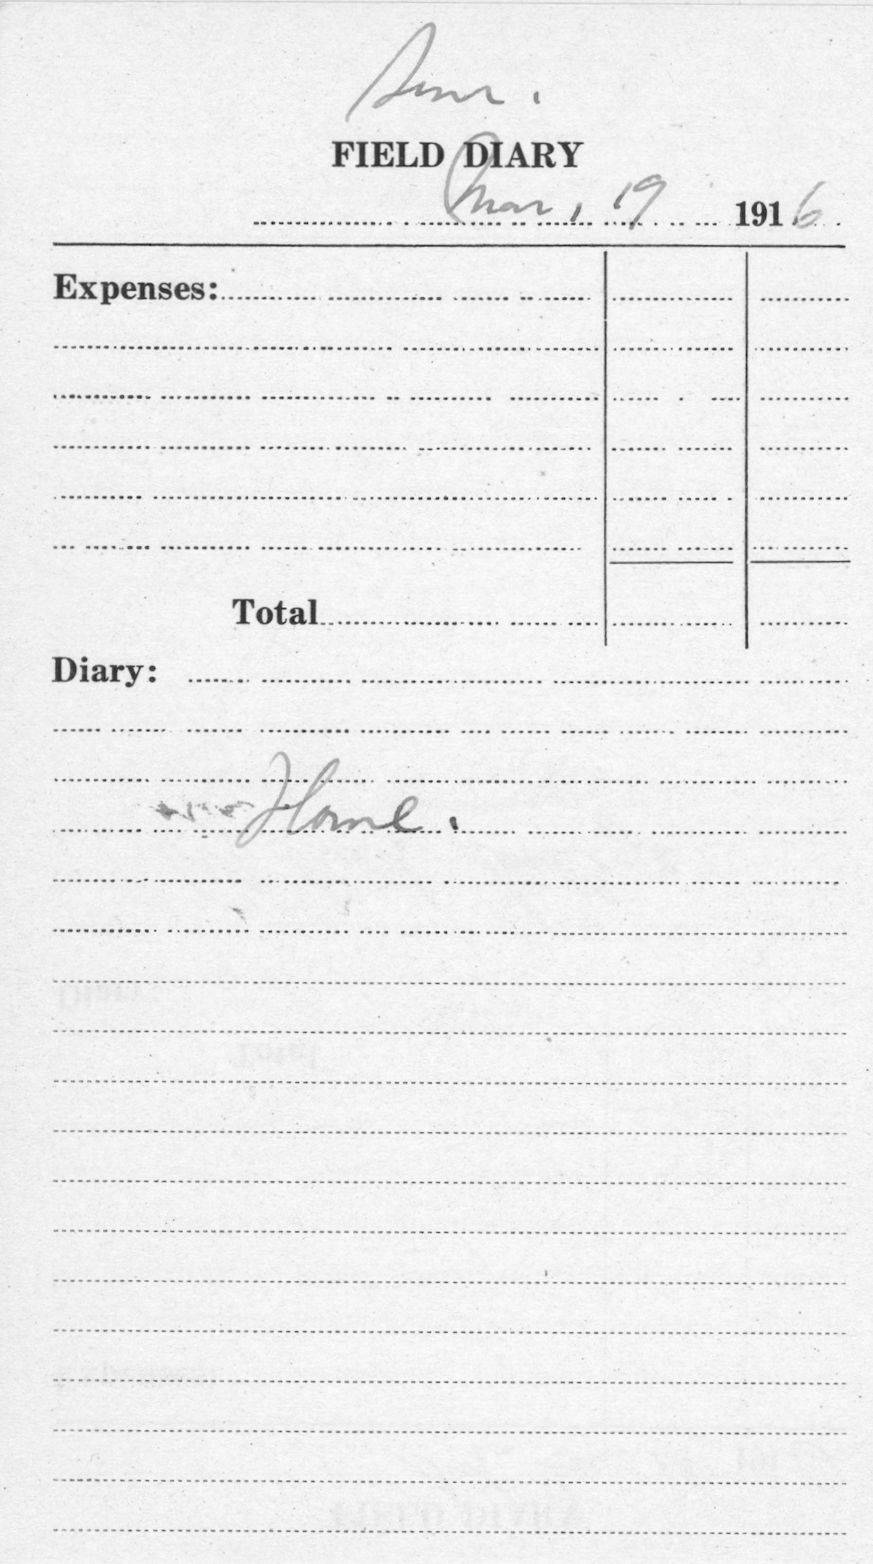 Sun.
FIELD DIARY
Mar, 19 1916
Expenses:
Total
Diary:
Home.